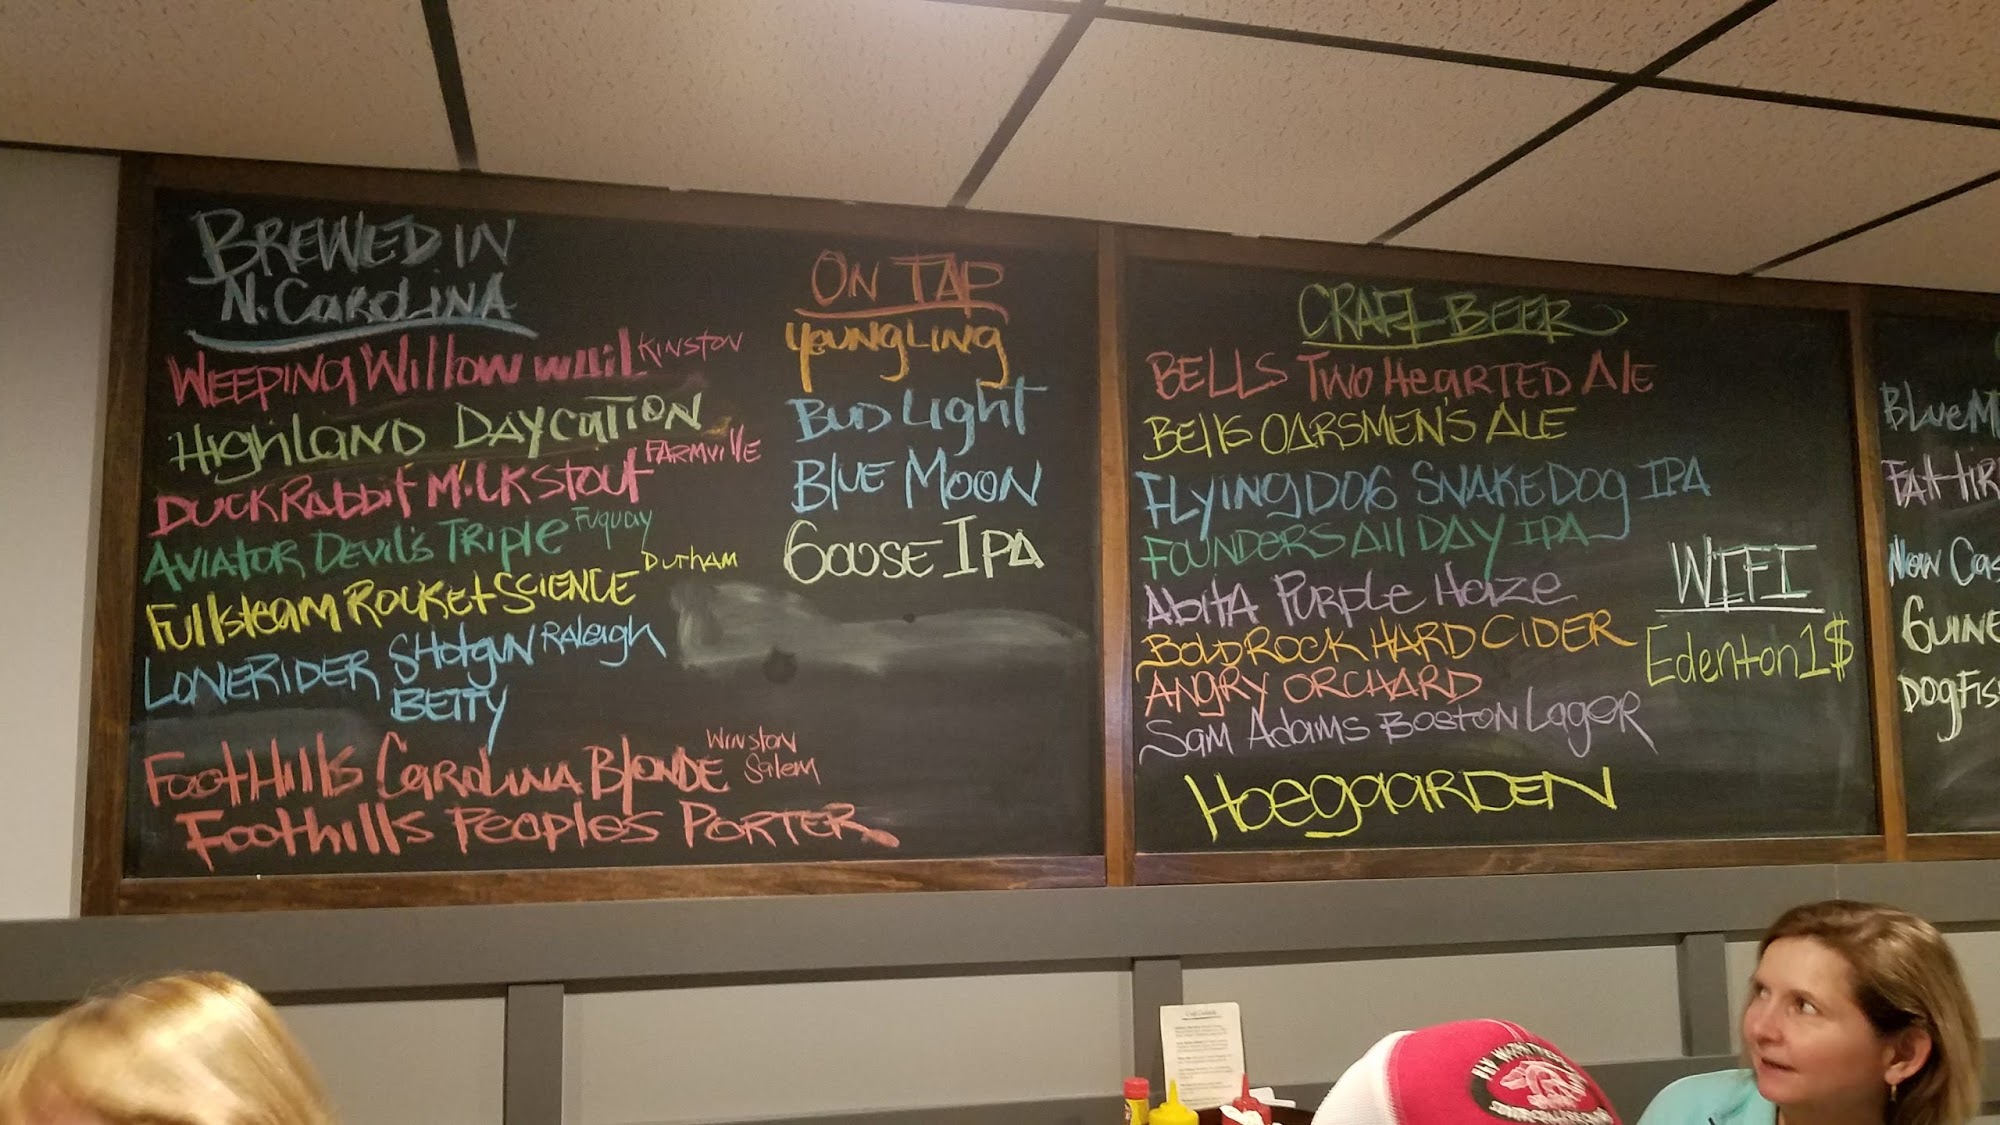 BREWED IN
N. CAROLINA
WEEPING Willow wail KINSTON
HIGHLAND DAYCATION
DUCKRabbit MilKstout FARMVillE
AVIATOR DEVIL'S TRIPLE Fuquay
Fullsteam ROCKET SCIENCE DURHAM
LONERIDER SHOTGUN RALEIGH
BETTY
FOOTHILLS CAROLINA BLONDE WINSTON
Salem
FOOTHILLS PEOPLES PORTER
ON TAP
YOUNGLING
BUD LIGHT
BLUE MOON
GOOSE IPA
CRAFT BEER
BELLS TWO HEARTED ALE
BELLS OARSMEN'S ALE
FLYING DOG SNAKE DOG IPA
FOUNDERS All DAY IPA
ABITA PURPLE HAZE
BOLD ROCK HARD CIDER
ANGRY ORCHARD
SAM ADAMS BOSTON LAGER
HOEGAARDEN
WIFI
Edenton1$
BLUE M
FAT TIR
NEW CAS
GUINE
DOGFIS